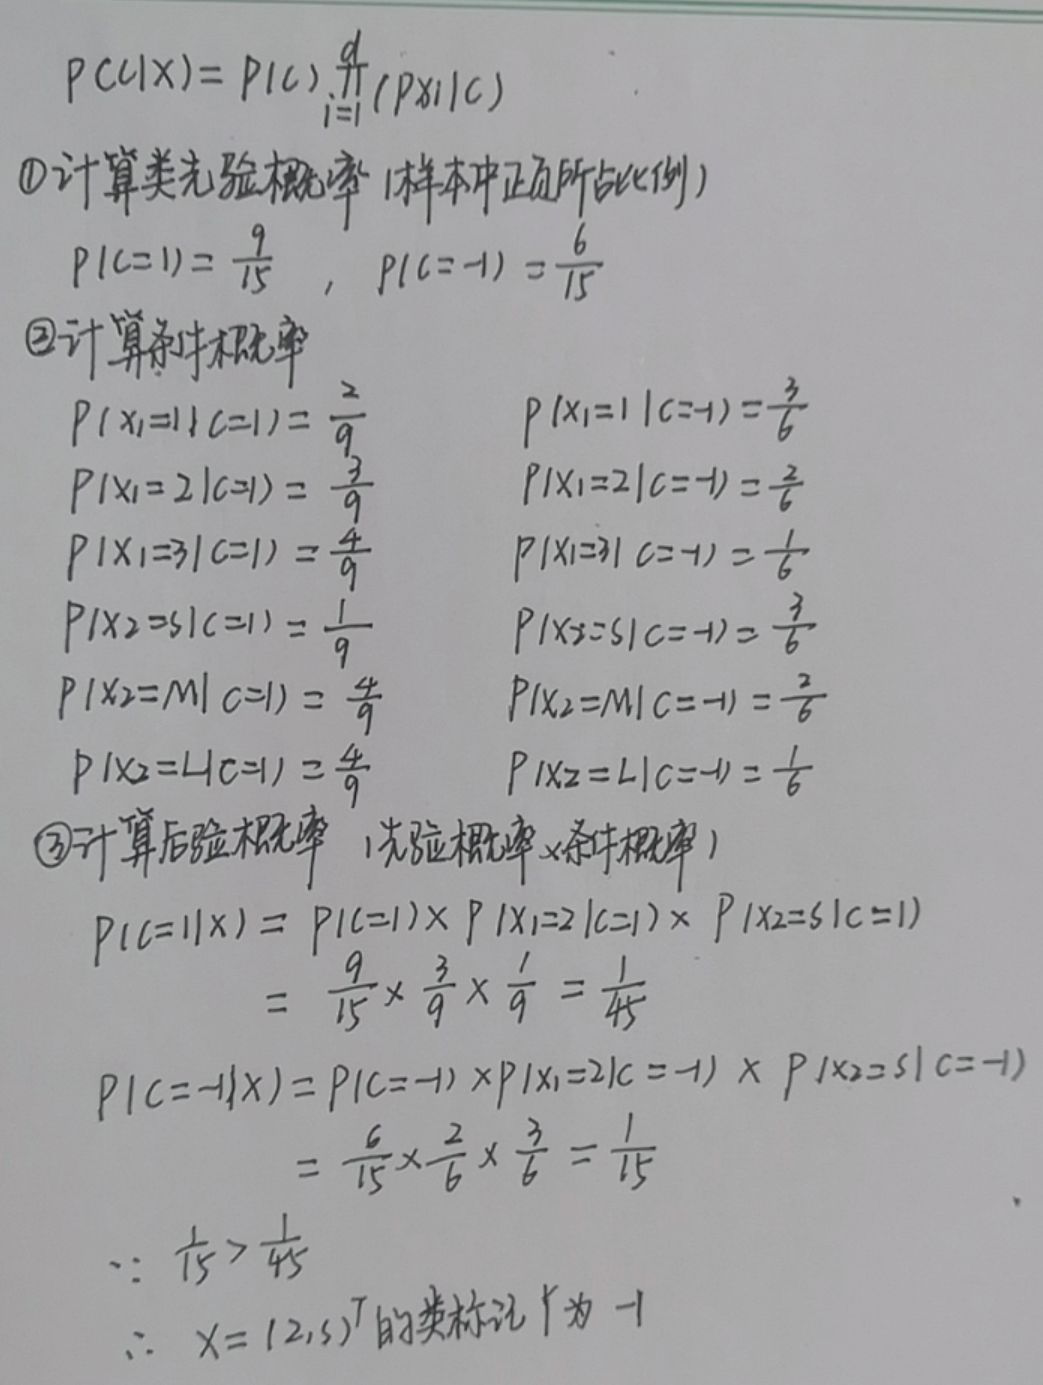 P(C|X) = P(C) ∏ᵢ₌₁ᵈ (Pxi|C)
①计算类先验概率(样本中正负所占比例)
P(C=1) = 9/15 , P(C=-1) = 6/15
②计算条件概率
P(X₁=1|C=1) = 2/9 P(X₁=1|C=-1) = 3/6
P(X₁=2|C=1) = 3/9 P(X₁=2|C=-1) = 2/6
P(X₁=3|C=1) = 4/9 P(X₁=3|C=-1) = 1/6
P(X₂=S|C=1) = 1/9 P(X₂=S|C=-1) = 3/6
P(X₂=M|C=1) = 4/9 P(X₂=M|C=-1) = 2/6
P(X₂=L|C=1) = 4/9 P(X₂=L|C=-1) = 1/6
③计算后验概率 (先验概率×条件概率)
P(C=1|X) = P(C=1) × P(X₁=2|C=1) × P(X₂=S|C=1)
= 9/15 × 3/9 × 1/9 = 1/45
P(C=-1|X) = P(C=-1) × P(X₁=2|C=-1) × P(X₂=S|C=-1)
= 6/15 × 2/6 × 3/6 = 1/15
∵ 1/15 > 1/45
∴ X=(2,S)ᵀ的类标记Y为 -1